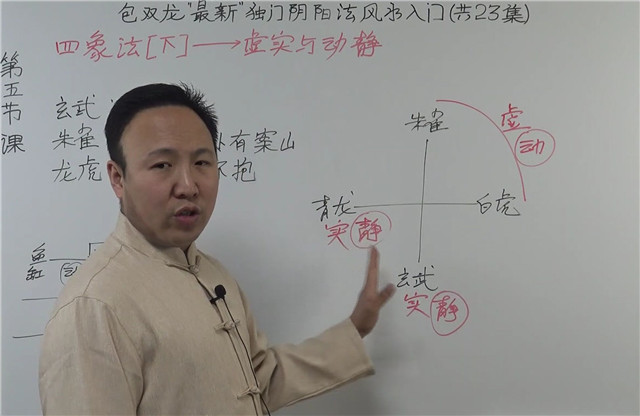 包双龙"最新"独门阴阳法风水入门(共23集)
四象法[下]→虚实与动静
第五节课
玄武
朱雀 外有案山
龙虎 不抱
鱼缸
朱雀
虚
动
青龙
白虎
实静
玄武
实静